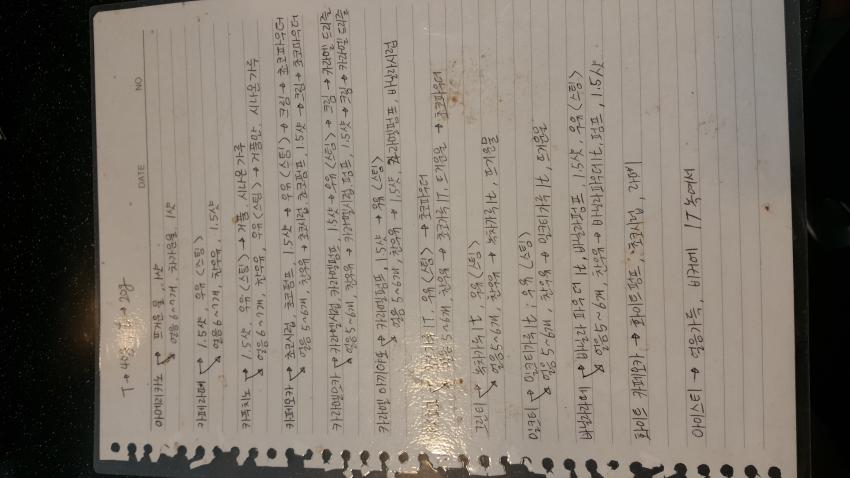 NO.
DATE
T → 40g t → 20g
아메리카노 → 뜨거운 물, 1샷
얼음 6~7개, 차가운물, 1샷
카페라떼 → 1.5샷, 우유 (스팀)
얼음 6~7개, 찬우유, 1.5샷
카푸치노 → 1.5샷, 우유 (스팀) → 거품, 시나몬가루
얼음 6~7개, 찬우유, 우유 (스팀) → 거품만, 시나몬가루
카페모카 → 초코시럽, 초코펌프, 1.5샷 → 우유 (스팀) → 크림 → 초코파우더
얼음 5~6개, 찬우유 → 초코시럽, 초코펌프, 1.5샷 → 크림 → 초코파우더
카라멜모카 → 카라멜시럽, 카라멜펌프, 1.5샷 → 우유 (스팀) → 크림 → 카라멜 드리즐
얼음 5~6개, 찬우유 → 카라멜시럽, 펌프, 1.5샷 → 크림 → 카라멜 드리즐
카라멜 마끼아또 → 카라멜펌프, 1.5샷 → 우유 (스팀)
얼음 5~6개, 찬우유 → 1.5샷, 카라멜펌프, 바닐라시럽
초코가루 1T, 우유 (스팀) → 초코파우더
얼음 5~6개, 찬우유 → 초코가루 1T, 뜨거운물 → 초코파우더
그린티 → 녹차가루 1t, 우유 (스팀)
얼음 5~6개, 찬우유 → 녹차가루 1t, 뜨거운물
밀크티 → 밀크티가루 1t, 우유 (스팀)
얼음 5~6개, 찬우유 → 밀크티가루 1t, 뜨거운물
바닐라라떼 → 바닐라 파우더 1t, 바닐라펌프, 1.5샷, 우유 (스팀)
얼음 5~6개, 찬우유 → 바닐라파우더 1t, 펌프, 1.5샷
화이트 카페모카 → 화이트펌프, 초코시럽
아이스티 → 얼음가득, 비커에 1T 녹여서